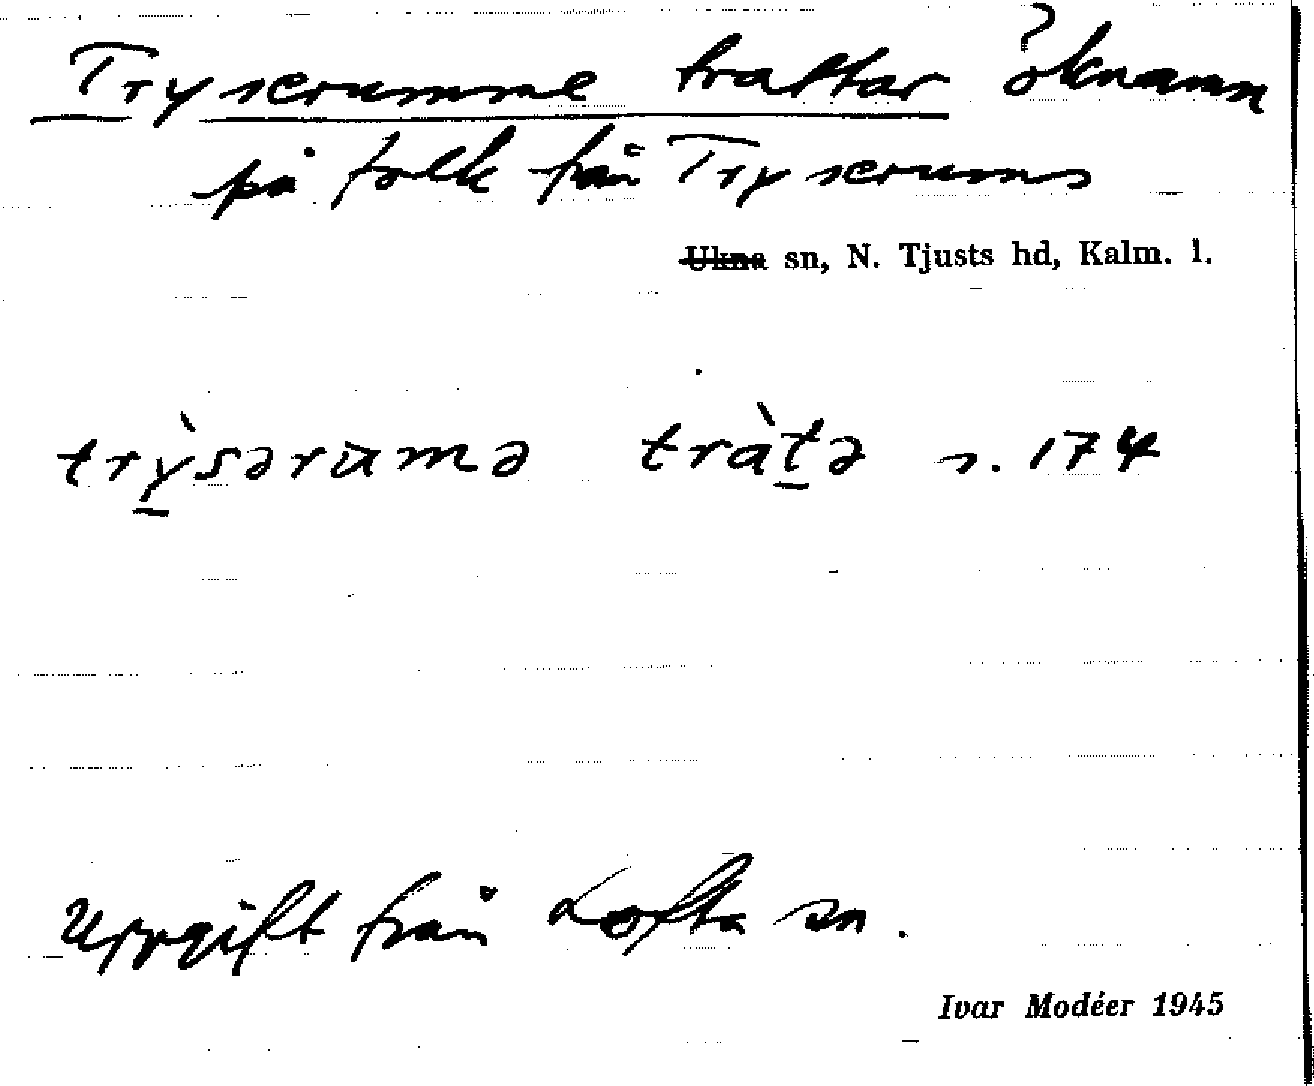 Tryserumme trattar öknamn
på folk från Tryserums
Ukna sn, N. Tjusts hd, Kalm. l.
trỳsərumə tràtə s. 174
Uppgift från Lofta sn.
Ivar Modéer 1945